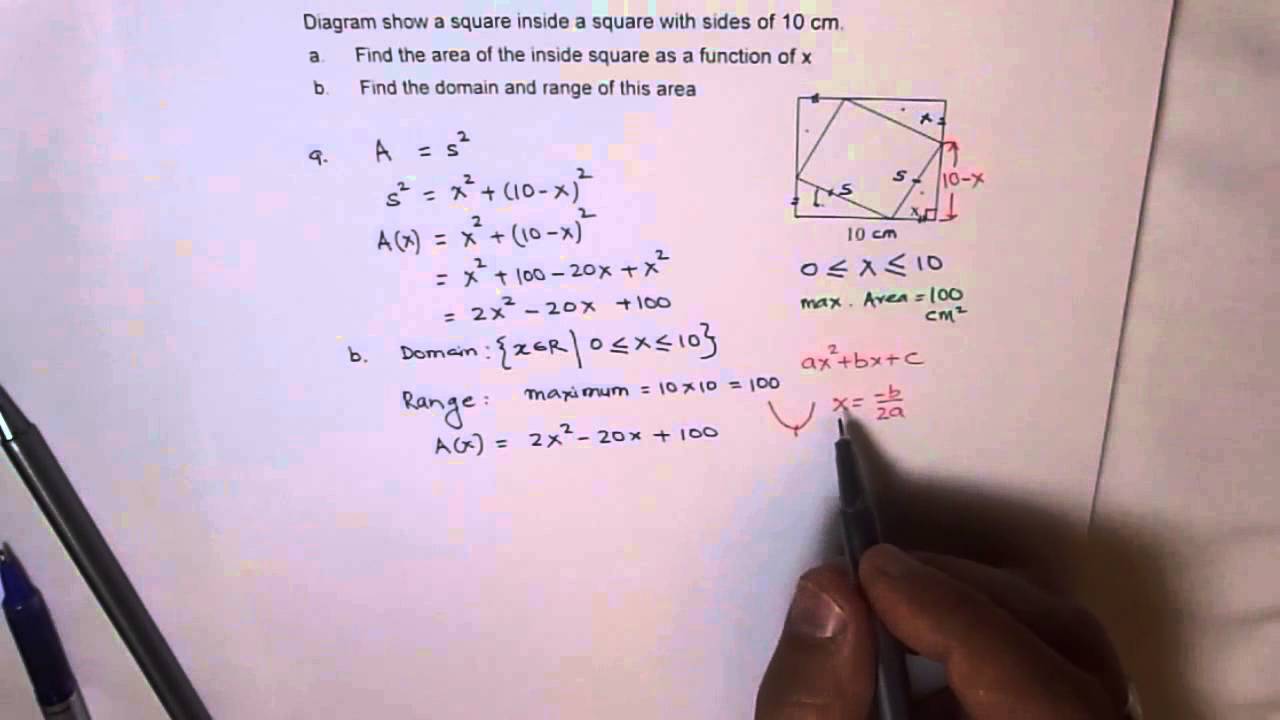 Diagram show a square inside a square with sides of 10 cm.
a. Find the area of the inside square as a function of x
b. Find the domain and range of this area
a. A = s²
s² = x² + (10-x)²
A(x) = x² + (10-x)²
= x² + 100 - 20x + x²
= 2x² - 20x + 100
b. Domain: {x∈R | 0 ≤ x ≤ 10}
Range: maximum = 10 × 10 = 100
A(x) = 2x² - 20x + 100
x
s
10-x
s
x
10 cm
0 ≤ x ≤ 10
max. Area = 100
cm²
ax² + bx + c
x = -b/2a